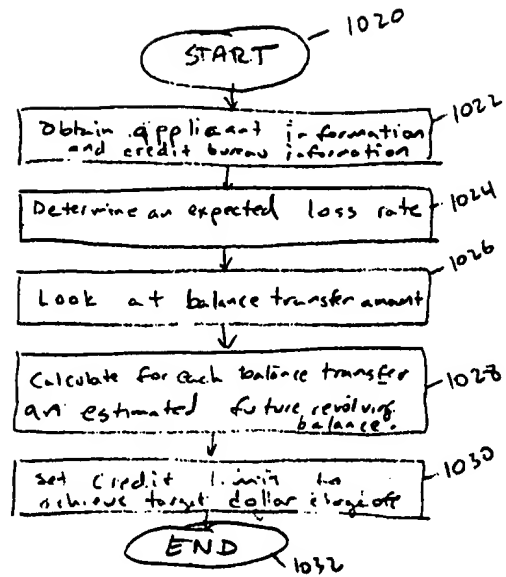 1020
START
1022
Obtain applicant information
and credit bureau information
1024
Determine an expected loss rate
1026
Look at balance transfer amount
Calculate for each balance transfer
1028
an estimated future revolving
balance.
1030
Set Credit limit to
achieve target dollar chargeoff
END
1032